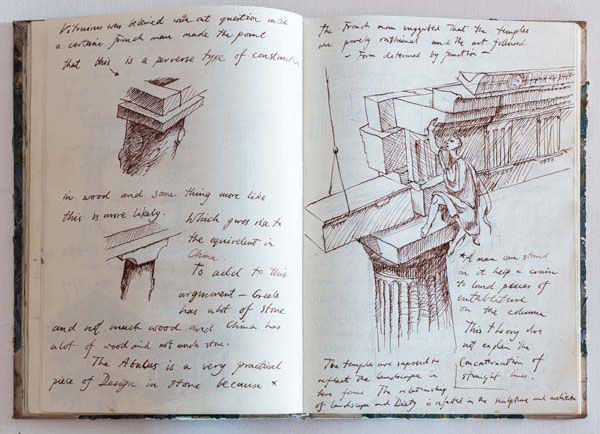 Vitruvius was believed with out question until
a certain French man made the point
that this is a perverse type of construction
in wood and some thing more like
this is more likely. Which gives rise to
the equivilent in
China.
To add to this
argument – Greece
has a lot of stone
and not much wood and China has
a lot of wood and not much stone.
The Abacus is a very practical
piece of Design in stone because *
the French man suggested that the temples
are purely
and the art followed
– Form determined by function –
* A man can stand
on it help a crain
to land pieces of
entablature
on the column
This theory does
not explain the
concentration of
straight lines.
The temples are supposed to
reflect the landscape in
there forms. The relationship
of landscape and Deity is reflected in the sculpture and architecture